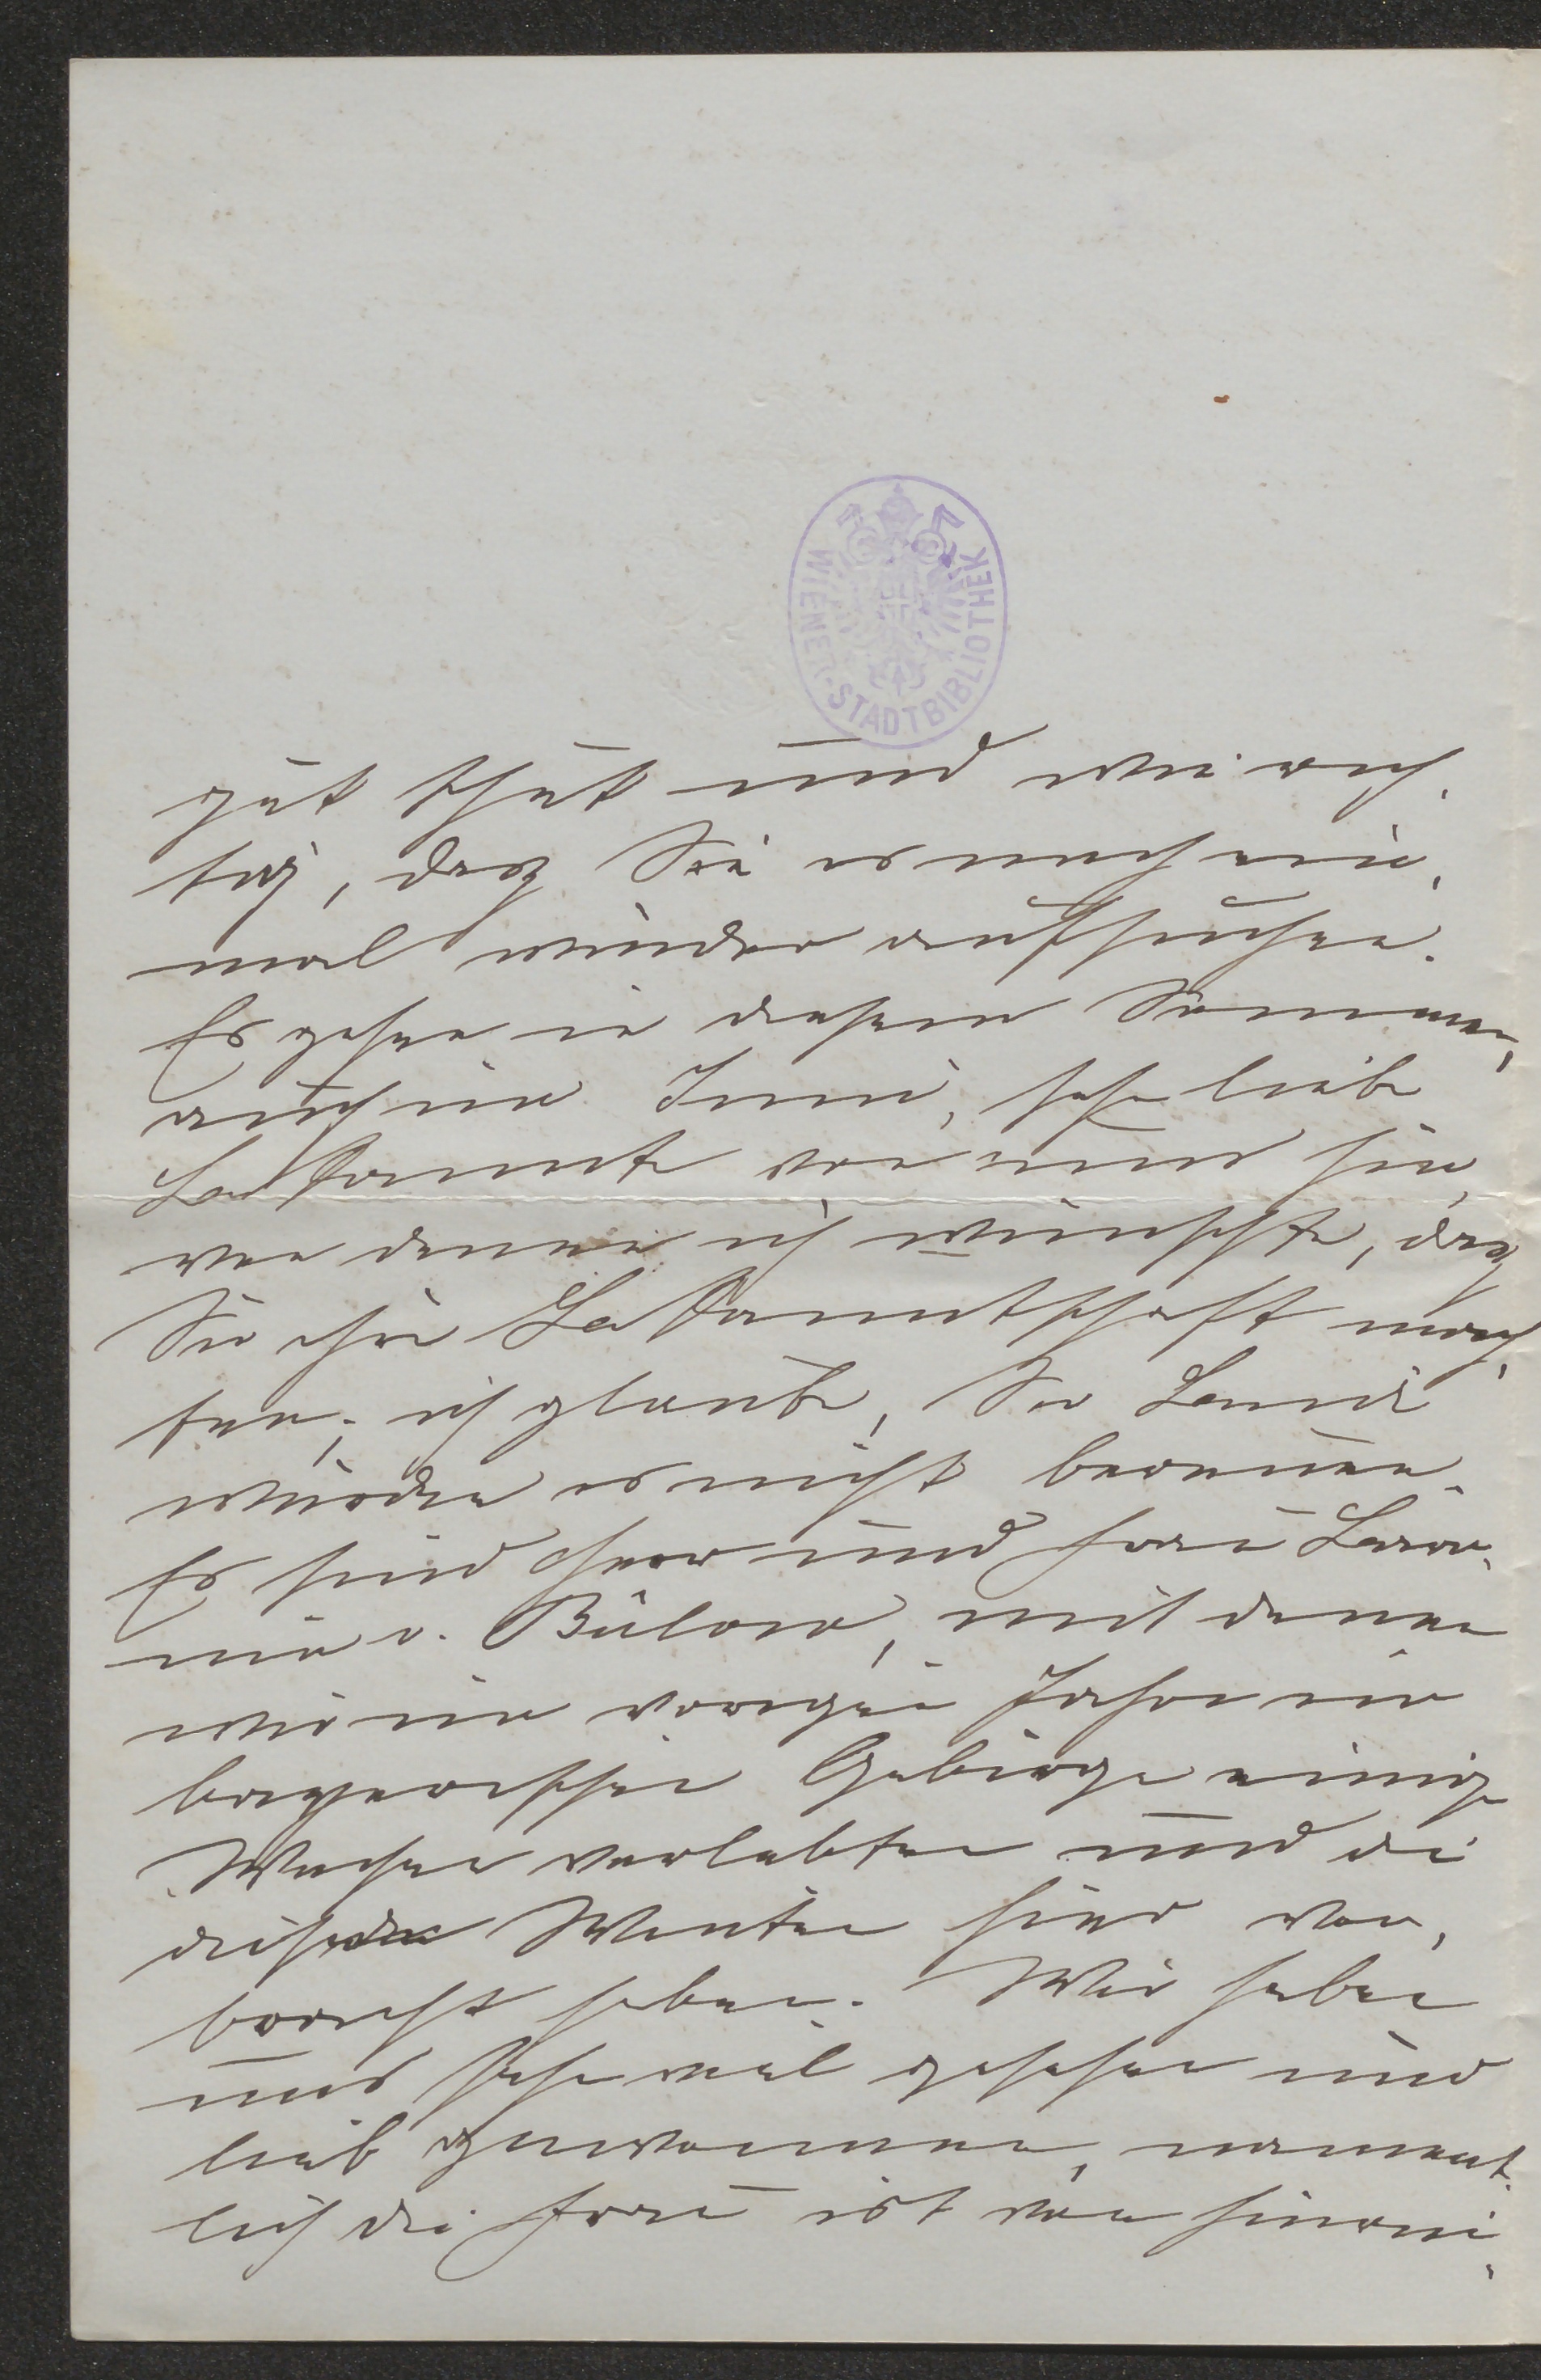 WIENER-STADTBIBLIOTHEK
gut thut und wie rich-
tig, daß Sie es noch ein-
mal wieder aufsuchen.
Es gehen in diesem Sommer,
auch im Juni, sehr liebe
Bekannte von uns hin,
von denen ich wünschte, daß
Sie ihre Bekanntschaft mach-
ten; ich glaube, Sie Beide
würden es nicht bereuen.
Es sind Herr und Frau Baro-
nin v. Bülow, mit denen
wir im vorigen Jahre im
bayerischen Gebirge einige
Wochen verlebten und die
diesen Winter hier ver-
bracht haben. Wir haben
uns sehr viel gesehen und
lieb gewonnen, nament-
lich die Frau ist von hinrei-